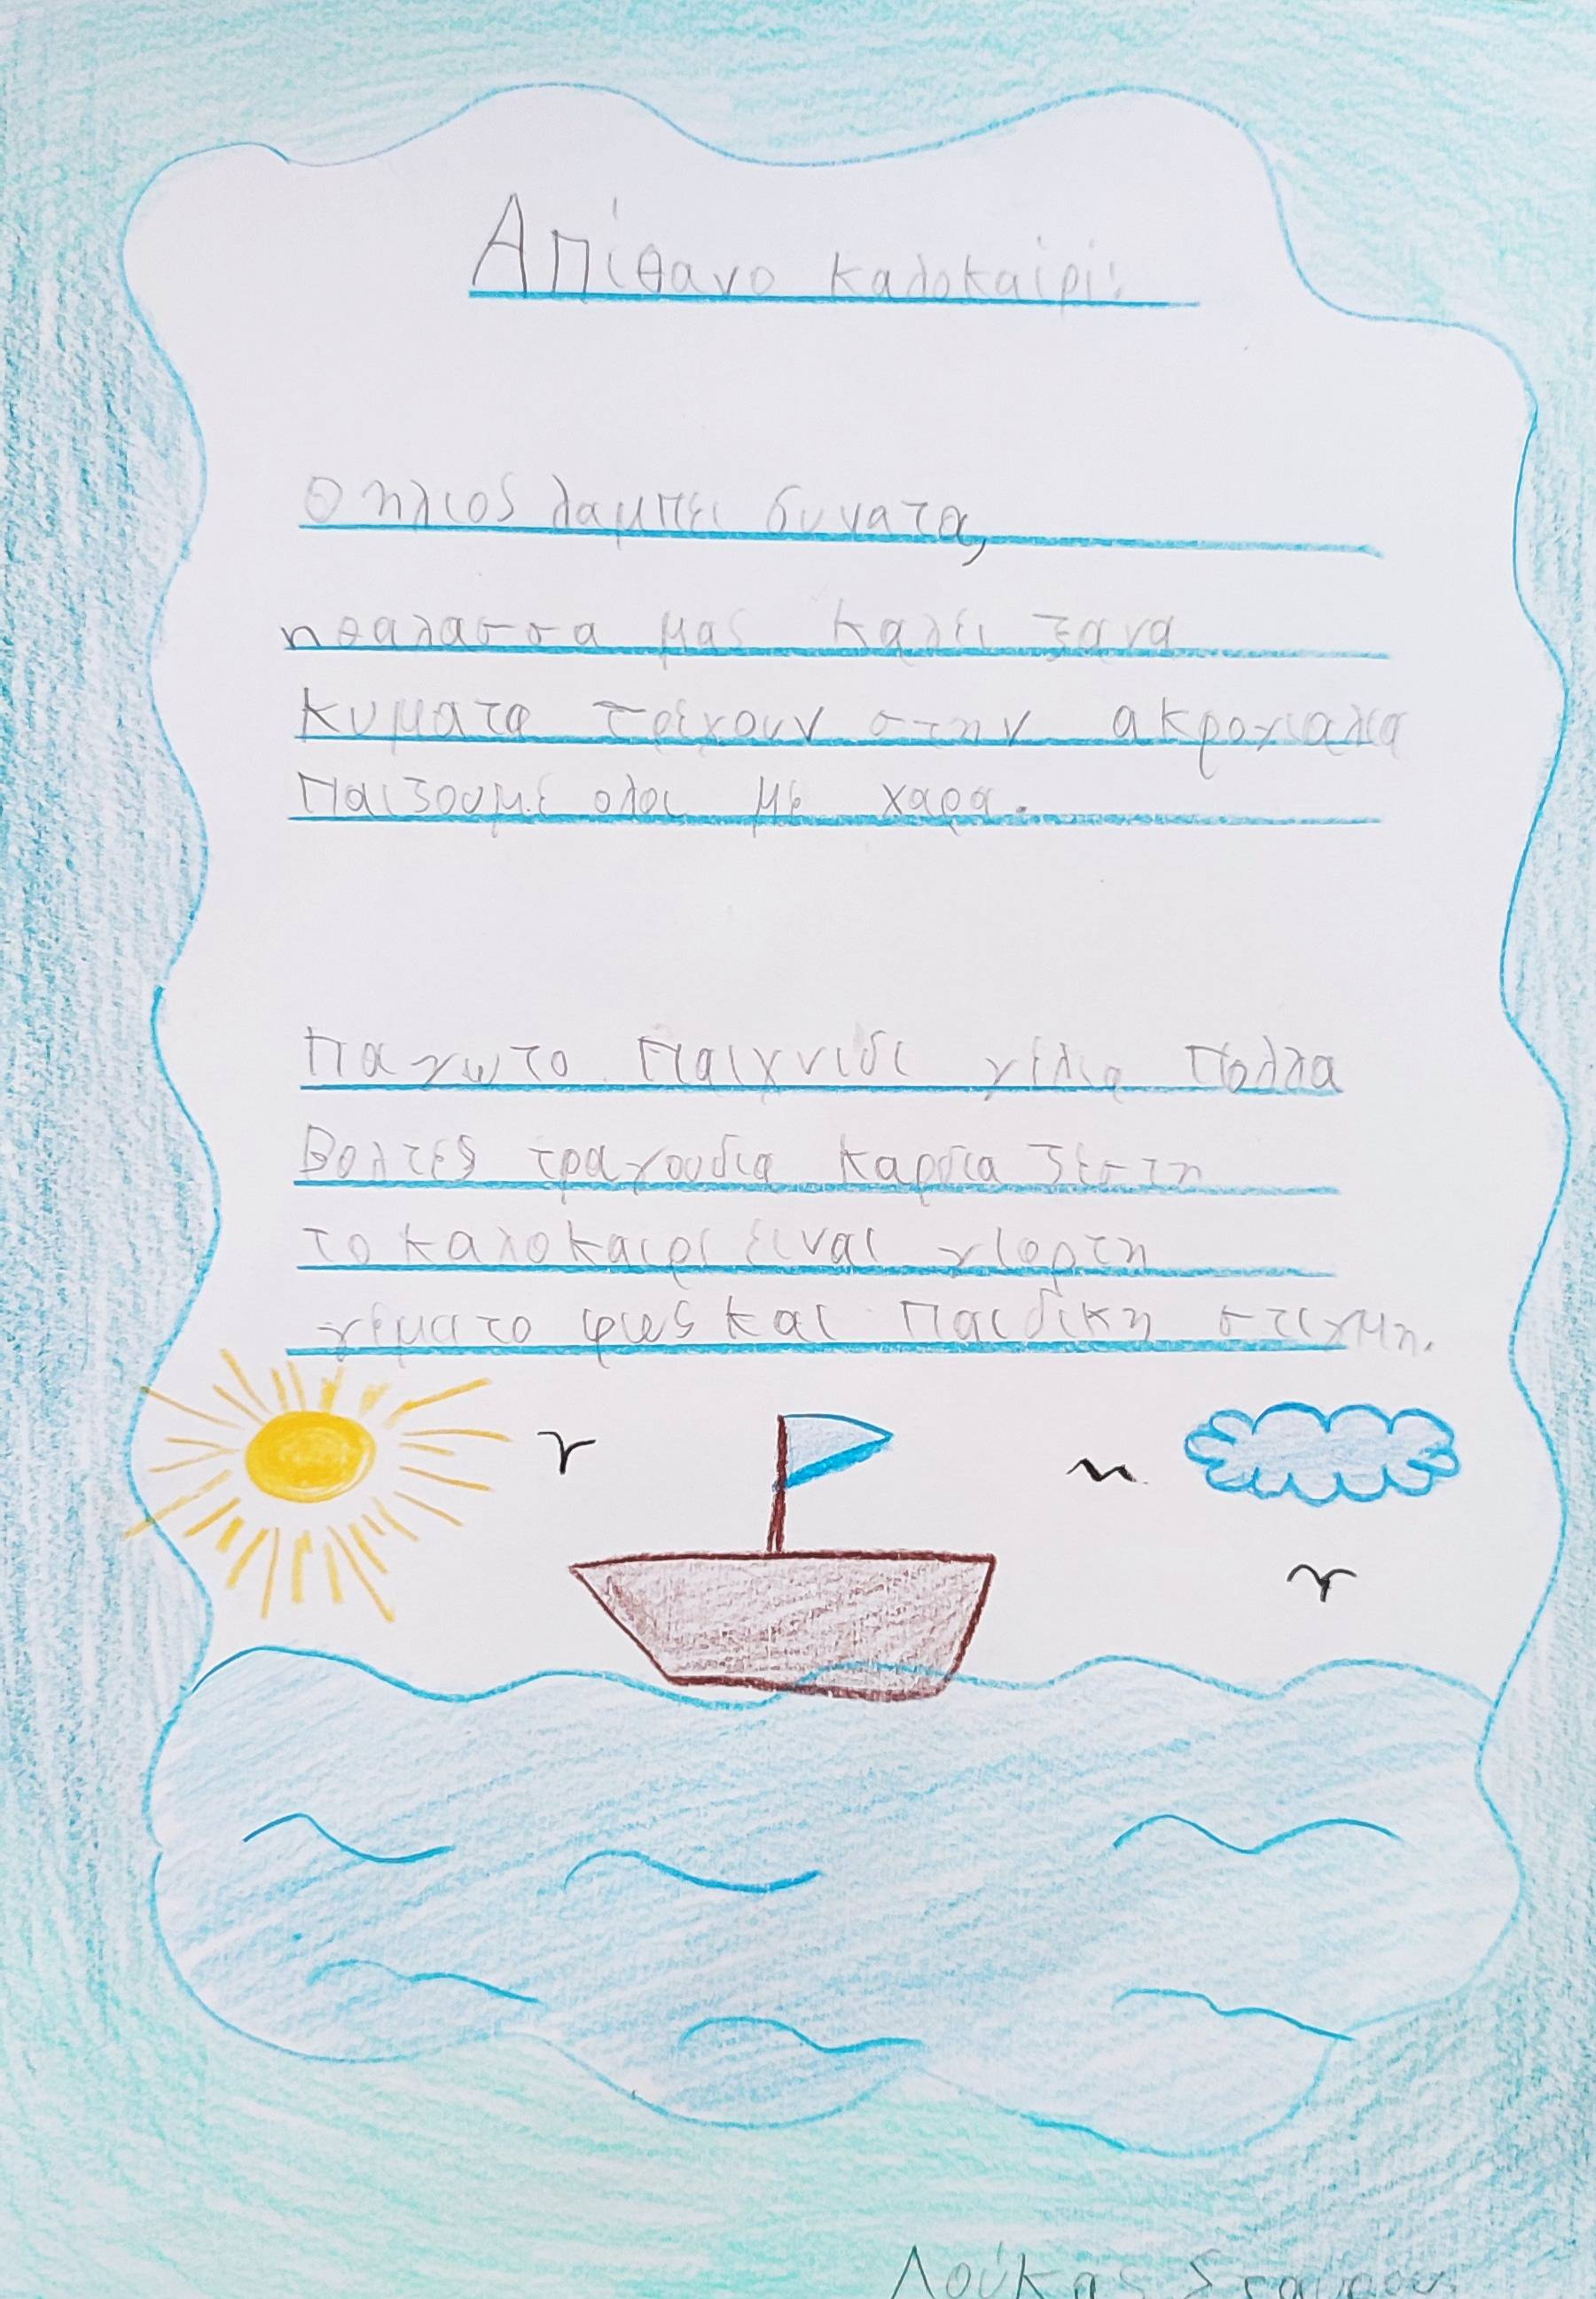 Απίθανο καλοκαίρι!
Ο ηλιος λαμπει δυνατα,
η θαλασσα μας καλει ξανα
Κυματα τρέχουν στην ακρογιαλια
Παιζουμε ολοι με χαρα.
Παγωτο Παιχνιδι γελια Πολλα
Βολτες τραγουδια καρδια ζεστη
το καλοκαιρι ειναι γιορτη
γεματο φως και παιδικη στιγμη.
Λούκας Σταύρου